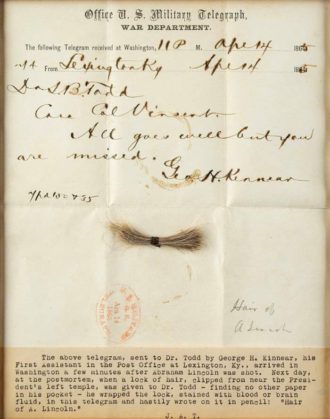 Office U. S. Military Telegraph,
WAR DEPARTMENT.
The following Telegram received at Washington, 11 P M. Apl 14 1865
From Lexington Ky Apl 14 1865
Dr L B Todd
Care Col Vincent.
All goes well but you
are missed.
Geo. H. Kinnear
Hair of
A Lincoln
The above telegram, sent to Dr. Todd by George H. Kinnear, his
First Assistant in the Post Office at Lexington, Ky., arrived in
Washington a few minutes after Abraham Lincoln was shot. Next day,
at the postmortem, when a lock of hair, clipped from near the Presi-
dent's left temple, was given to Dr. Todd - finding no other paper
in his pocket - he wrapped the lock, stained with blood or brain
fluid, in this telegram and hastily wrote on it in pencil: "Hair
of A. Lincoln."